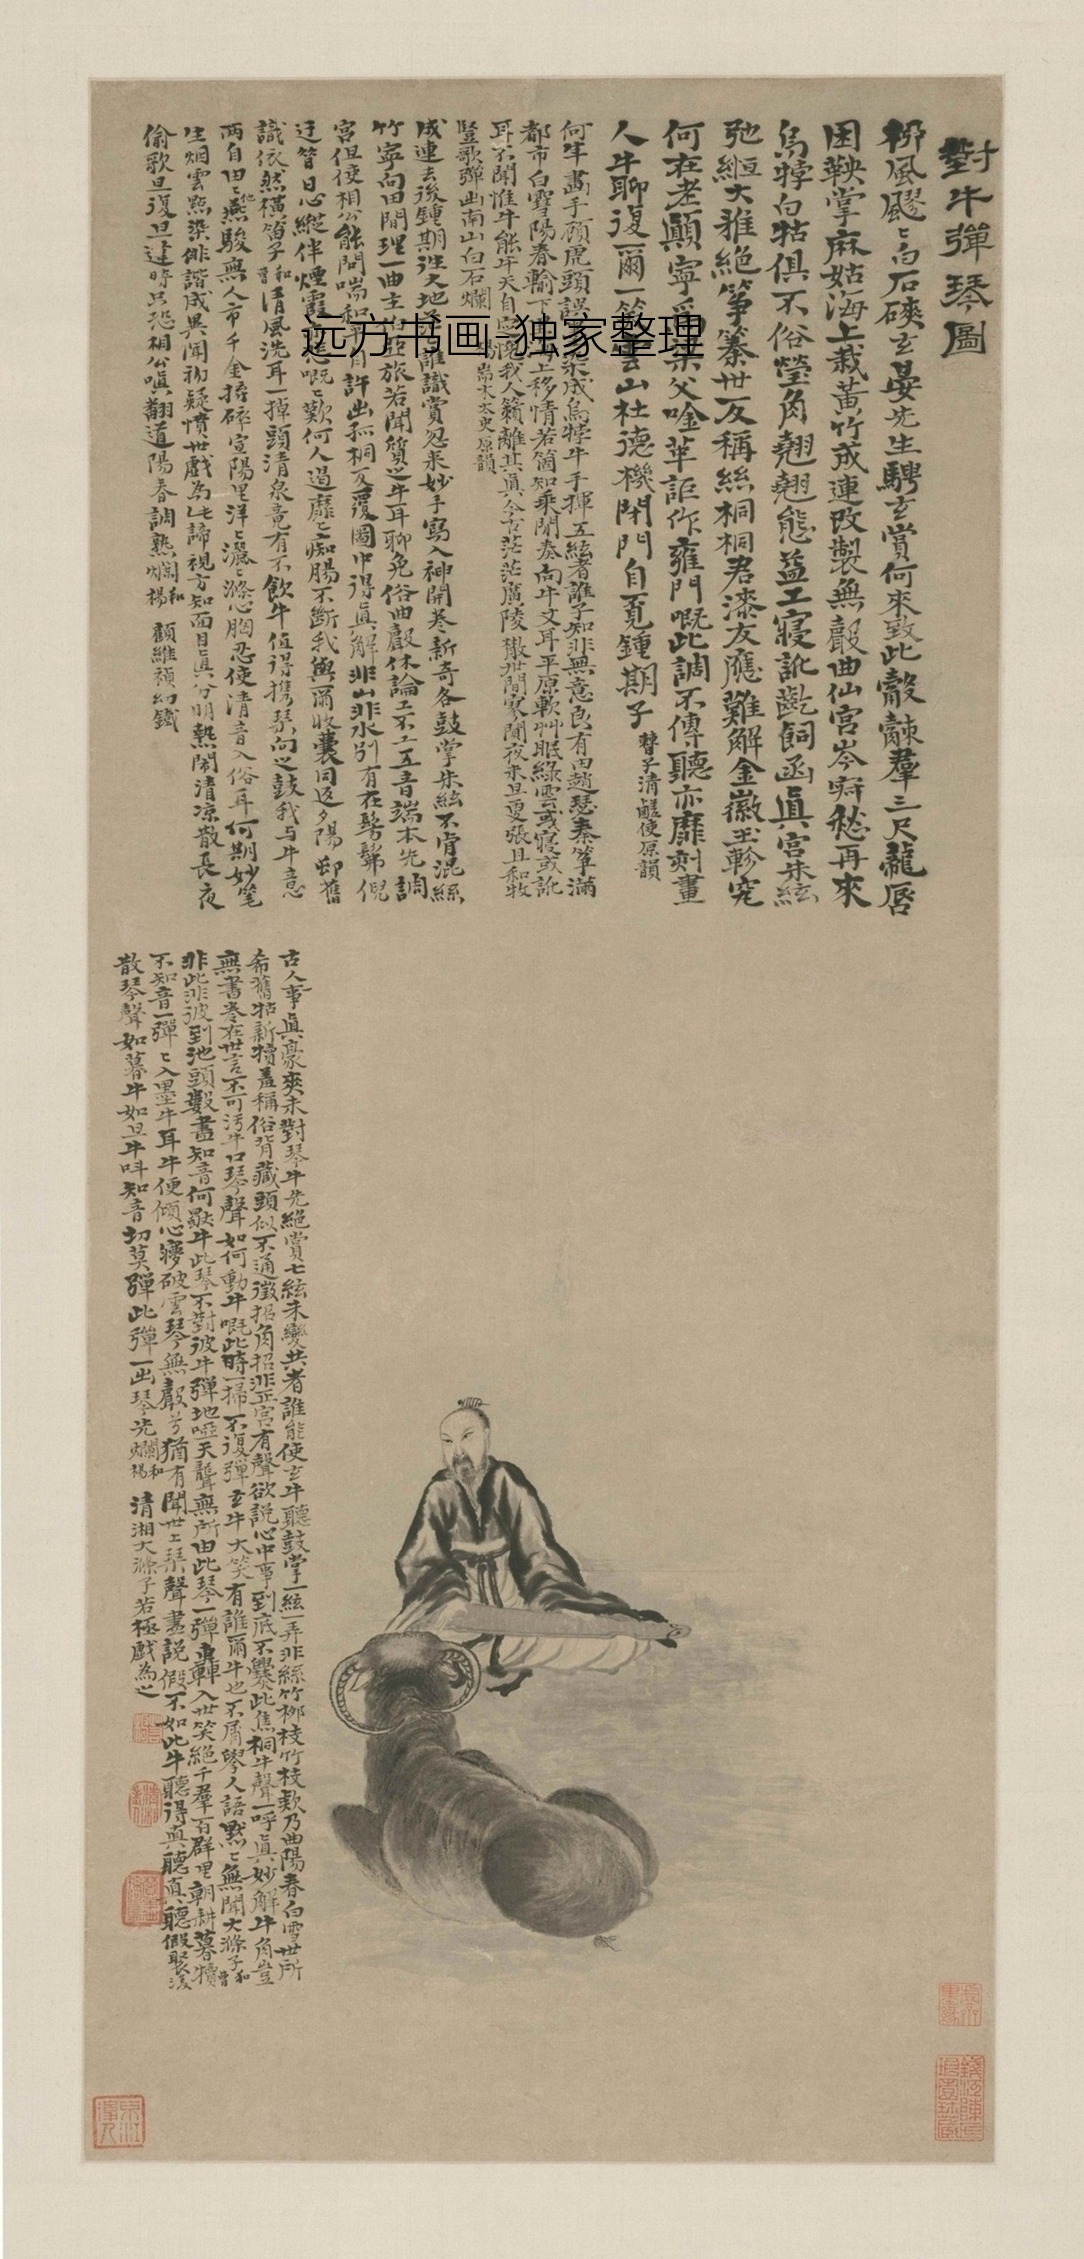 對牛彈琴圖
柳風飂〻白石磢玄晏先生騁玄賞何來致此觳觫羣三尺龍唇
困鞅掌麻姑海上栽黃竹成連改製無聲曲仙宮岑寂愁再來
烏牸白牯俱不俗瑩角翹翹態益工寢訛齕飼函真宮朱絃
弛縆大雅絕箏篆世反稱絲桐桐君漆友應難解金徽玉軫究
何在老顛寧受柴父唫華詎作雍門嘅此調不傳聽亦靡刻畫
人牛聊復爾一笑雲山杜德機閉門自覓鍾期子 楝子清鹺使原韻
何年畫手顧虎頭誤筆染成烏牸牛手揮五絃者誰子知非無意良有由趙瑟秦箏滿
都市白雪陽春輸下里海上移情若箇知乘閒奏向牛丈耳平原軟艸眠綠雲或寢或訛
耳不聞惟牛能牛天自定隗我人籟離其真今古茫茫廣陵散世間寥聞夜未旦戛張且和牧
豎歌彈出南山白石爛 楊耑木太史原韻
成連去後鍾期往大地誰識賞忽來妙手寫入神開卷新奇各鼓掌朱絃不肯混絲
竹寧向田間理一曲主伯亞旅若聞質之牛耳聊免俗曲嚴休論工不工五音端本先調
宮但使相公能問喘和平許出孤桐反覆圖中得真解非山非水別有在髣髴倪
迂昝日心縱伴煙霞亦慇嘅〻歎何人過靡〻痴腸不斷我與爾收囊同返夕陽邨舊
識依然橫笛子 和曹
清風洗耳一掉頭清泉竟有不飲牛值得攜琴向之鼓我与牛意
兩自由〻他燕駿無人市千金捂碎宣陽里洋〻灑〻滌心胸忍使清音入俗耳何期妙笔
生烟雲點染俳諧成異聞初疑憤世戲為此諦視方知面目真分明熱鬧清凉散長夜
偷歌旦復旦逢時只恐相公嗔翻道陽春調熟爛 和楊 顧維禎幻鐵
古人事真豪爽未對琴牛先絕賞七絃未變共者誰能使玄牛聽鼓掌一絃一弄非絲竹柳枝竹枝欸乃曲陽春白雪世所
希舊牯新犢羞稱俗背藏頭似不通徵招角招非正宮有聲欲說心中事到底不爨此焦桐牛聲一呼真妙解牛角豈
無書卷在世言不可污牛口琴聲如何動牛嘅此時一掃不復彈玄牛大笑有誰爾牛也不屑學人語默〻無聞大滌子 和曹
非此非彼到池頭數盡知音何歇牛此琴不對彼牛彈地啞天聾無所由此琴一彈轟入世笑絕千羣百群里朝耕暮犢
不知音一彈〻入墨牛耳牛便傾心夢破雲琴無聲兮猶有聞世上琴聲盡說假不如此牛聽得真聽真聽假聚復
散琴聲如暮牛如旦牛叫知音切莫彈此彈一出琴先爛 和楊 清湘大滌子若極戲為之
远方书画 独家整理